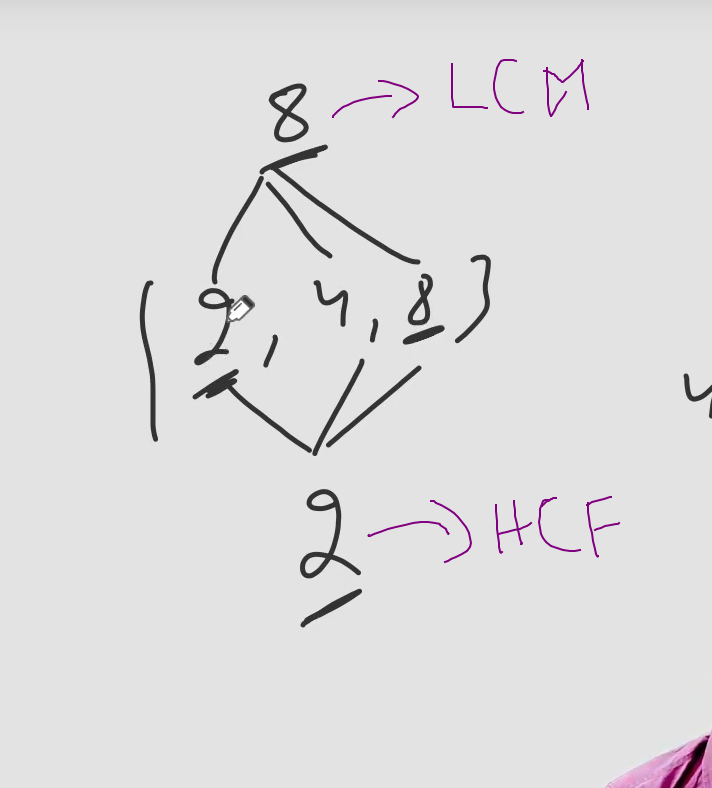 8 → LCM
{2, 4, 8}
2 → HCF